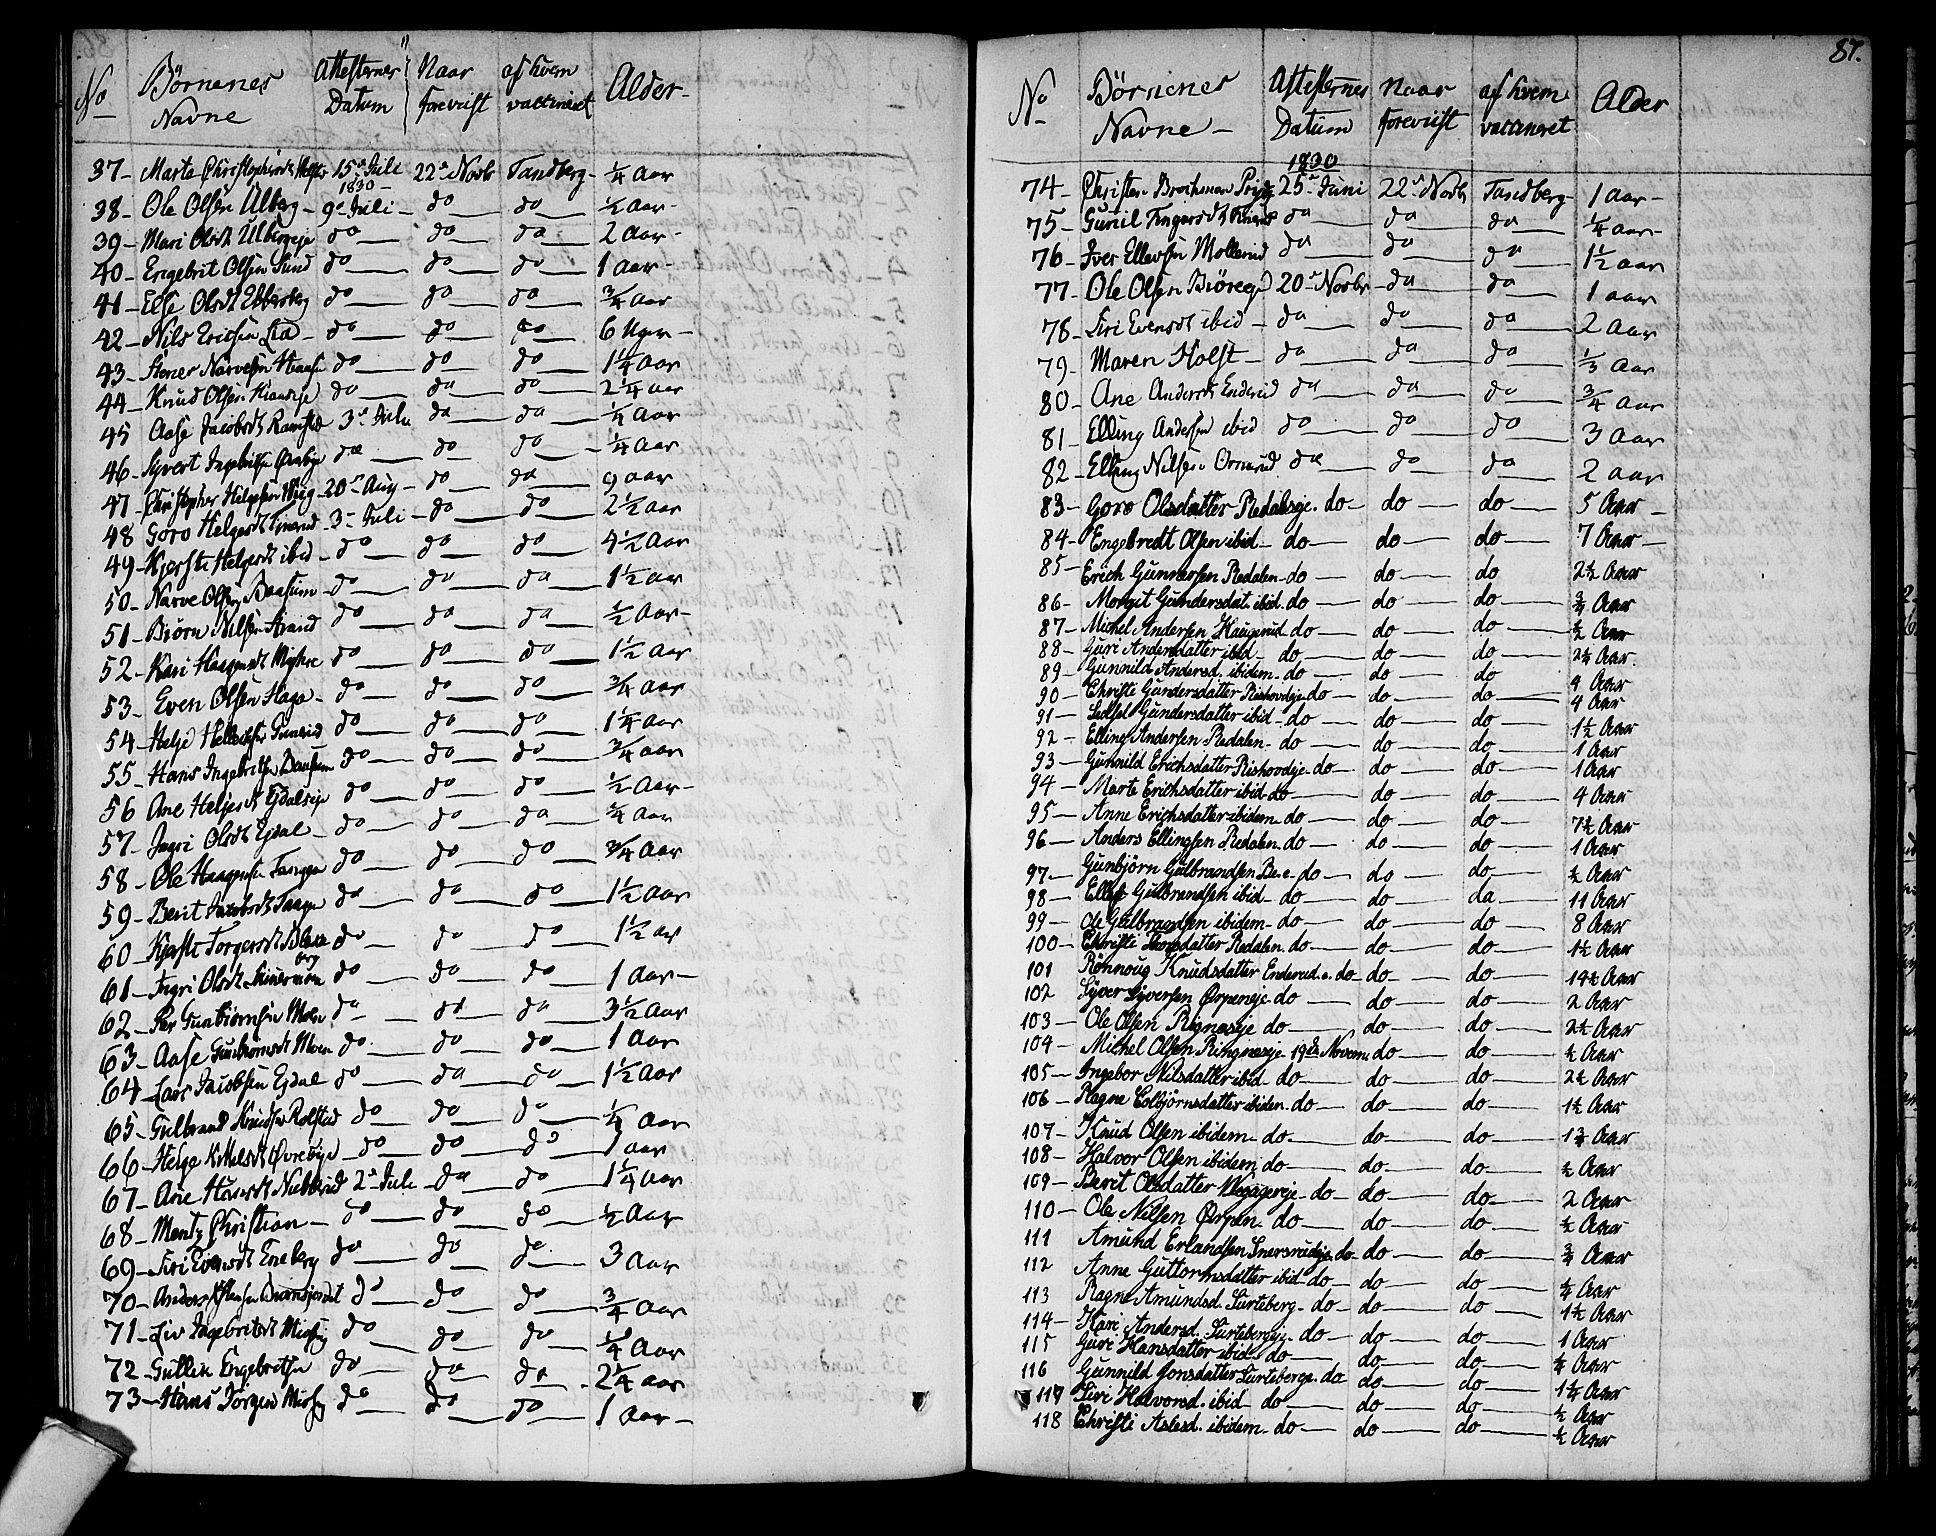 No Børnenes Navne Attesternes Datum Naar foreviist af hvem vaccineret Alder
37 - Marte 15de Juli 22de Novbr Tandberg - ¼ Aar
1830
38 - Ole Olsen Ulberg - 9de Juli - do do ½ Aar -
39 - Mari Olsdt Ulbergeje do do do 2 Aar -
40 - Engebrit Olsen Lund do do do 1 Aar -
41 - Else Olsdt Ebbesberg do do do ¾ Aar
42 - Nils Ericsen Lia - do do do 6 Uger -
43 - Stener Narvesen do do do 1¼ Aar
44 - Knud Olsen do do do 2¼ Aar
45 Aase Jacobsdt Ramstad 3de Juli do do ¼ Aar
46 - Syvert Ingebritsen do do do - ¼ Aar
47 - Christopher Helgesen - 20de Aug - do do 9 aar
48 Goro Helgesdt - 3de Juli - do do 2½ Aar
49 - Kjersti Helgesdt ibid - do do do 4½ Aar
50 - Narve Olsen Baasum - do do do 1½ Aar
51 - Biørn Nilsen do do do ½ Aar -
52 - Kari Haagensdt Myhre do do do 1½ Aar
53 - Even Olsen Haga - do do do ¾ Aar
54 - Helje do do do 1¼ Aar
55 - Hans Ingebritsen Baasum do do do ¾ Aar
56 Ane Heljesdt Ejdalseje do do do ½ Aar -
57 - Ingri Olsdt Ejdal - do do do ¾ Aar
58 - Ole Haagensen do do do ¾ Aar
59 - Berit Jacobsdt do do do 1½ Aar
60 - Kjersti Torgersdt do do do 1½ ar
61 - Ingri Olsdt do do do 1 Aar -
62 - Per Gunbiørnsen Moen do do do 3½ Aar
63 - Aase Gunbiørnsdt Moen do do do 1 Aar
64 - Lars Jacobsen Ejdal do do do 1½ Aar
65 - Gulbrand Knudsen Rolstad do do do ¼ Aar
66 - Helge Kittelsdt Øvrebye - do do do 1 aar
67 - Ane Nubberud 2de Juli - do do 1¼ Aar
68 - Mentz Christian - do do do ½ Aar
69 - Siri Evensdt Eneberg do do do 3 Aar
70 - Anders do do do ¾ Aar
71 - Liv Ingebritsdt do do do ¼ Aar
72 - Gullik Engebretsen do do do - 2¼ aar
73 - Hans Jørgen do do do 1 Aar -
87.
No Børnenes Navne - Attesternes Datum Naar foreviist af hvem vaccineret Alder
1830
74 - Christen 25de Juni 22de Novbr Tandberg 1 aar -
75 - Gunil do do do ¼ Aar -
76 - Iver Ellevsen Mollerud do do do 1½ aar
77 - Ole Olsen 20de Novbr - do do 1 aar
78 - Siri Evensdt ibid - do do do 2 Aar
79 - Maren Holst - do do do ⅓ Aar
80 - Ane Andersdt Enderud do do do ¾ Aar
81 - Elling Andersen ibid do do do 3 Aar
82 - Elling Nilsen do do do 2 aar
83 - Goro Olsdatter Redalseje. do - do - do - 5 Aar -
84 - Engebredt Olsen ibid - do - do - do - 7 Aar -
85 - Erich Gunnersen Redalen - do - do - do 2½ Aar
86 - Margit Gundersdat. ibid. do - do - do - ¾ Aar
87 - Michel Andersen Haugerud do - do - do - ½ Aar
88 - Guri Andersdatter ibid - do - do - do - 2¼ Aar.
89 - Gunnild Andersd. ibidem - do - do - do 4 Aar
90 - Christi Gundersdatter Rishovdeje do - do - do - 4 Aar
91 - Gundersdatter ibid - do - do - do - 1½ Aar
92 - Elling Andersen Redalen - do - do - do - 1 Aar
93 - Gunnild Erichsdatter Rishovdeje. do - do - do - 1 Aar
94 - Marte Erichsdatter ibid do - do - do - 4 Aar
95 - Anne Erichsdatter ibidem - do - do - do - 7½ Aar
96 - Anders Ellingsen Redalen. do - do - do - 1 Aar
97 - Gunbjörn Gulbrandsen Re. e - do - do - do - ½ Aar
98 - Ellef Gulbrandsen ibid - do - do - da - 11 Aar
99 - Ole Gulbrandsen ibidem - do - do - do - 8 Aar
100 - Christi Redalen. do - do - do - 1½ Aar
101 Rönnoug Knudsdatter Enderud. e. do do - do - 19½ Aar
102 Syver Syversen Ørpeneje do - do - do - 2 Aar
103 - Ole Olsen do - do - do - 2½ Aar
104 - Michel Olsen Ringneseje 19de Novem. do - do - ½ Aar
105 - Ingebor Nilsdatter ibid - do - do - do - 2½ Aar
106 - Ragne Colbjörnsdatter ibidem. do - do - do - 1½ Aar
107 - Knud Olsen ibidem - do - do - do - 1¾ Aar
108 - Halvor Olsen ibidem do - do - do - ½ Aar
109 - Berit Olsdatter - do - do - do - 2 Aar
110 - Ole Nilsen Ørpen - do - do - do - ½ Aar
111 Amund Erlandsen Snersrudeje do - do - do - ¾ Aar
112 Anne Guttormsdatter ibid - do - do - do - ¼ Aar
113 Ragne Amundsd. Surteberg - do - do - do - 1½ Aar
114 - Kari Andersd. Surtebergeje - do - do - do - 1 Aar
115 Guri Hansdatter ibid - do - do - do - ¼ Aar
116 Gunnild Jonsdatter Surteberge. do do - do - 1¼ Aar
117 Siri Halvorsd. ibid - do - do - do - ½ Aar
118 Christi Aslesd. ibidem - do - do - do - ½ Aar